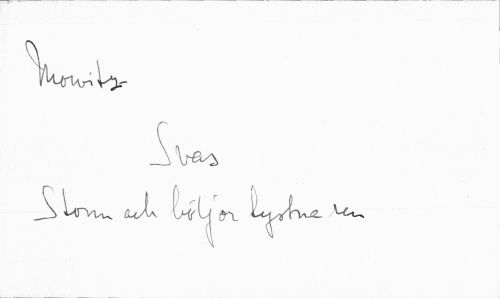 Mowitz
Svas
Storm och böljor tystna ren